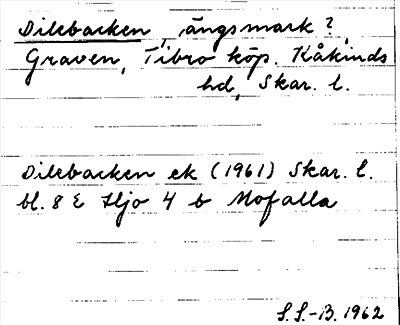 Dilebacken, ängsmark?,
Graven, Tibro köp. Kåkinds
hd, Skar. l.
Dilebacken ek (1961) Skar. l.
bl. 8 E Hjo 4 b Mofalla
S.S.-B. 1962